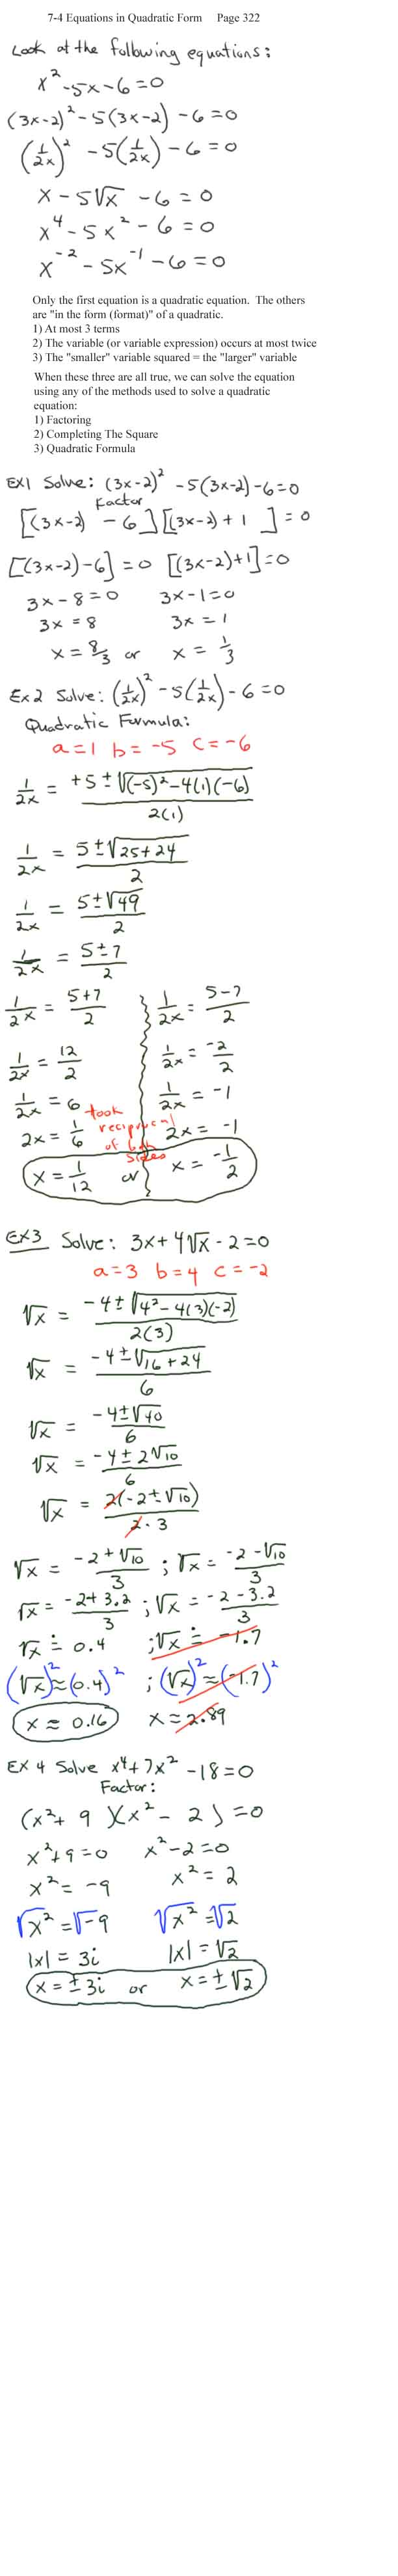 7-4 Equations in Quadratic Form Page 322
Look at the following equations:
x² -5x-6=0
(3x-2)² -5(3x-2) -6=0
(1/2x)² -5(1/2x) -6=0
x-5√x -6=0
x⁴-5x² -6=0
x⁻²-5x⁻¹-6=0
Only the first equation is a quadratic equation. The others
are "in the form (format)" of a quadratic.
1) At most 3 terms
2) The variable (or variable expression) occurs at most twice
3) The "smaller" variable squared = the "larger" variable
When these three are all true, we can solve the equation
using any of the methods used to solve a quadratic
equation:
1) Factoring
2) Completing The Square
3) Quadratic Formula
EX1 Solve: (3x-2)² -5(3x-2)-6=0
Factor
[(3x-2) -6][(3x-2)+1]=0
[(3x-2)-6]=0 [(3x-2)+1]=0
3x-8=0 3x-1=0
3x=8 3x=1
x=8/3 or x=1/3
Ex2 Solve: (1/2x)² -5(1/2x)-6=0
Quadratic Formula:
a=1 b=-5 c=-6
1/2x = +5±√(-5)²-4(1)(-6) / 2(1)
1/2x = 5±√25+24 / 2
1/2x = 5±√49 / 2
1/2x = 5±7 / 2
1/2x = 5+7 / 2 1/2x = 5-7 / 2
1/2x = 12/2 1/2x = -2/2
1/2x = 6 1/2x = -1
took reciprocal of both sides
2x = 1/6 2x = -1
x = 1/12 or x = -1/2
EX3 Solve: 3x+4√x-2=0
a=3 b=4 c=-2
√x = -4±√4²-4(3)(-2) / 2(3)
√x = -4±√16+24 / 6
√x = -4±√40 / 6
√x = -4±2√10 / 6
√x = 2(-2±√10) / 2·3
√x = -2+√10 / 3 ; √x = -2-√10 / 3
√x = -2+3.2 / 3 ; √x = -2-3.2 / 3
√x ≐ 0.4 ; √x ≐ -1.7
(√x)²≈(0.4)² ; (√x)²≈(-1.7)²
x≈0.16 x≈2.89
EX 4 Solve x⁴+7x² -18=0
Factor:
(x²+9)(x²-2)=0
x²+9=0 x²-2=0
x²=-9 x²=2
√x²=√-9 √x²=√2
|x|=3i |x|=√2
x=±3i or x=±√2